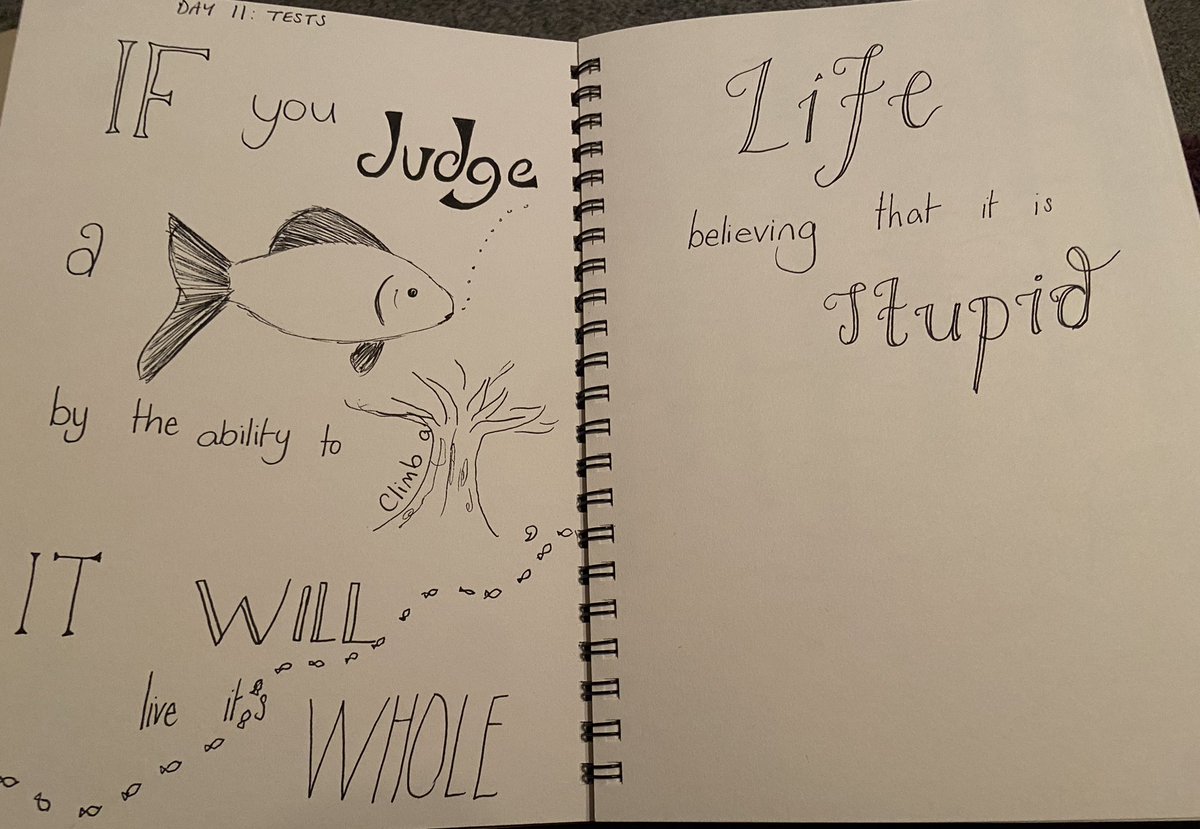 DAY 11: TESTS
IF you Judge
a
by the ability to Climb a
IT WILL
live its WHOLE
Life
believing that it is
Stupid